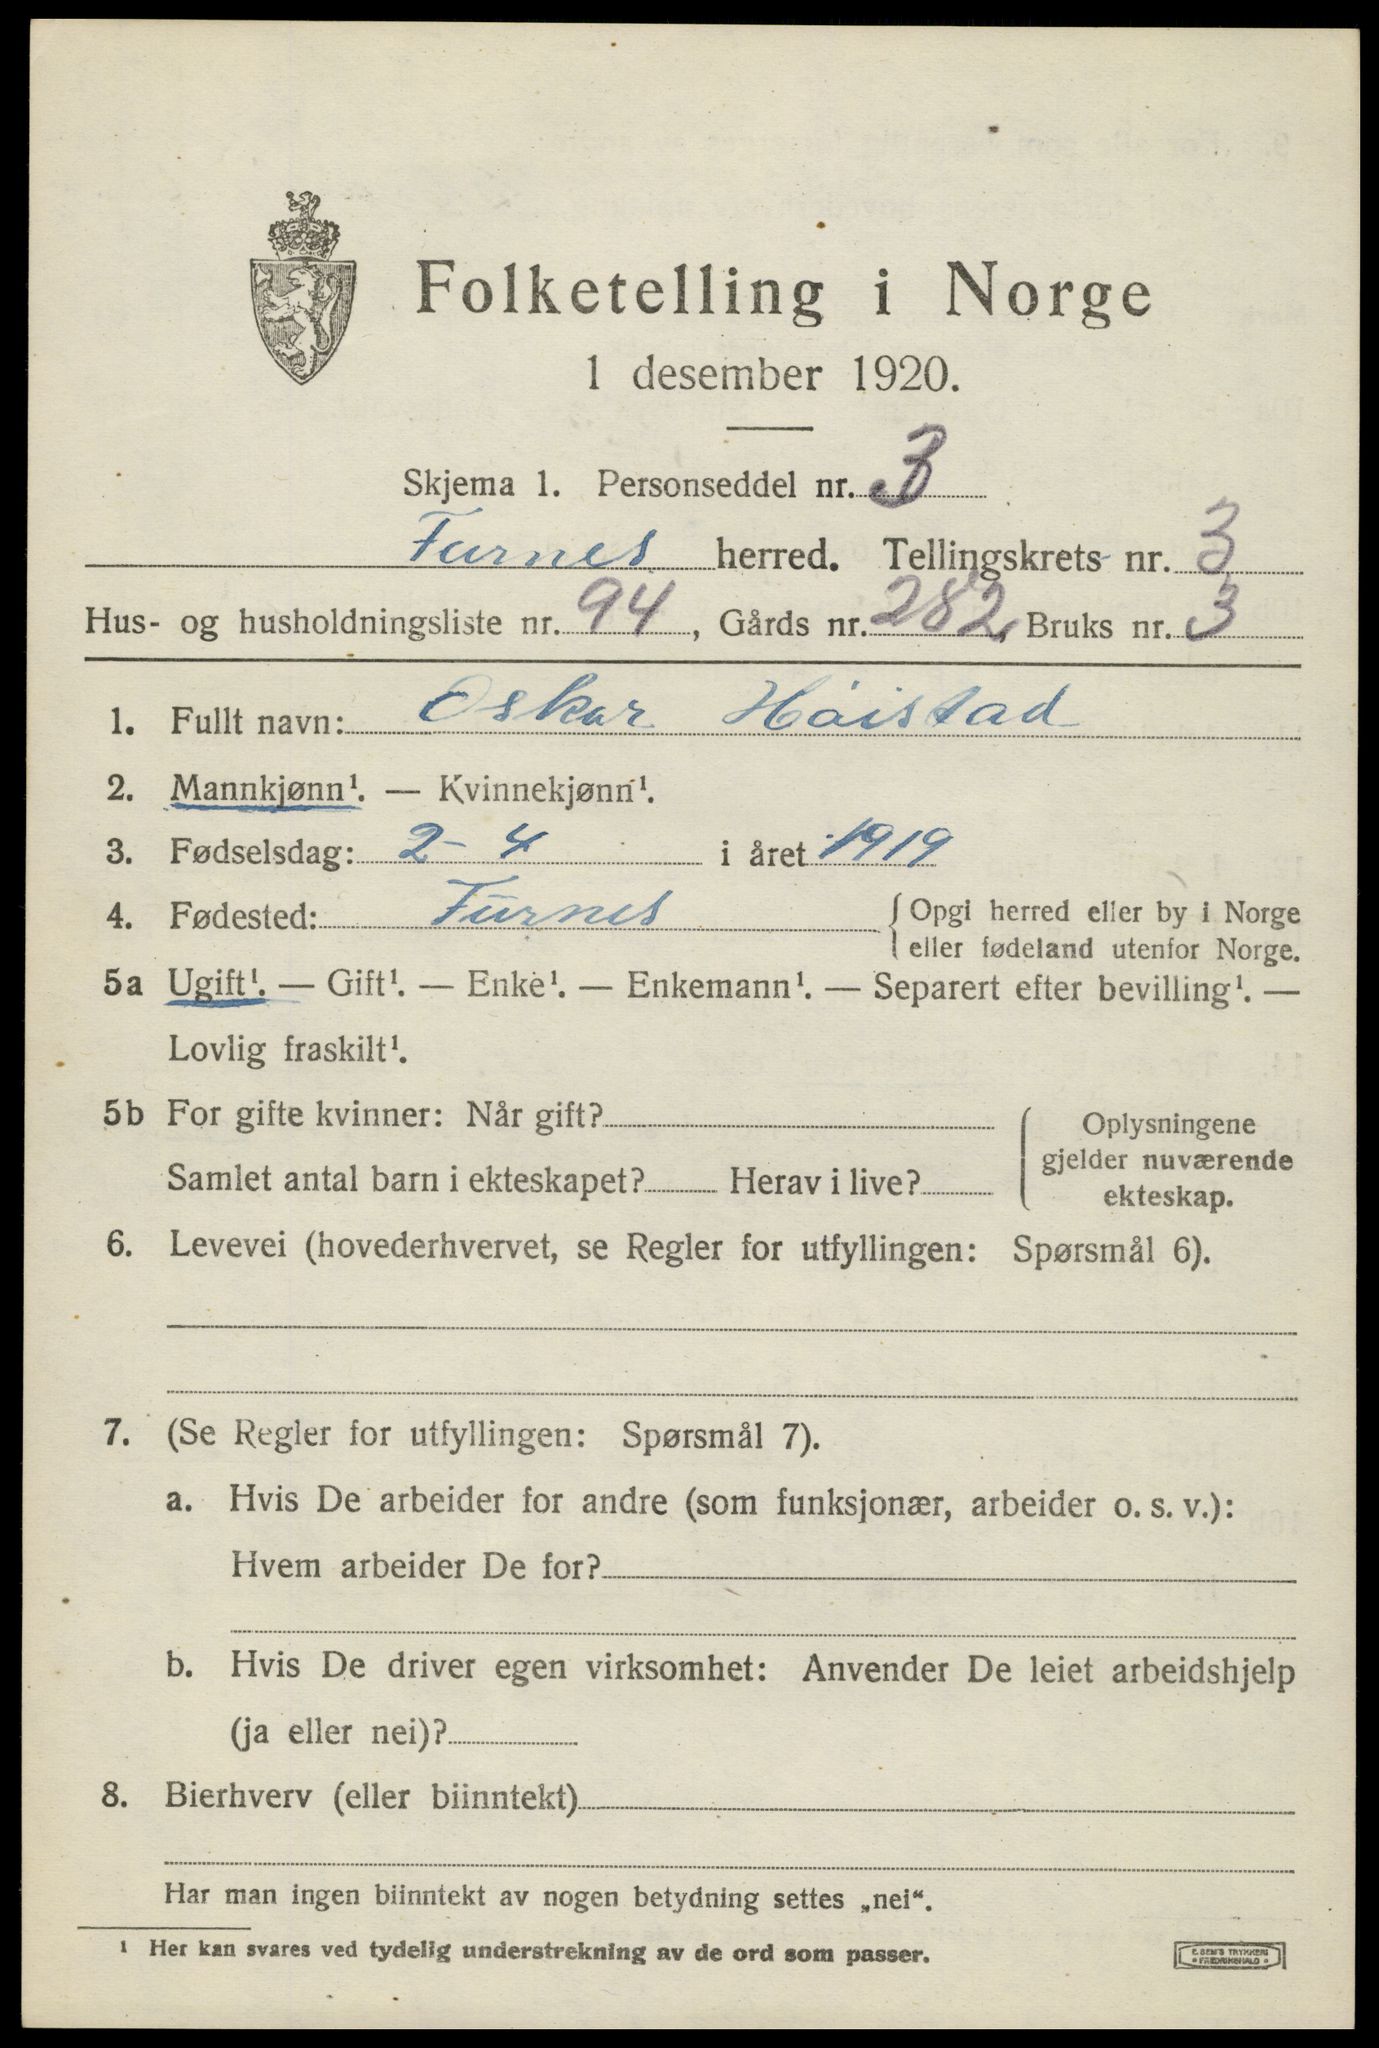 Folketelling i Norge
1 desember 1920.
Skjema 1. Personseddel nr. 3
Furnes herred. Tellingskrets nr. 3
Hus- og husholdningsliste nr. 94, Gårds nr. 282, Bruks nr. 3
1. Fullt navn: Oskar Höistad
2. Mannkjønn¹. — Kvinnekjønn¹.
3. Fødselsdag: 2-4 i året 1919
4. Fødested: Furnes
{ Opgi herred eller by i Norge
eller fødeland utenfor Norge.
5a Ugift¹. — Gift¹. — Enke¹. — Enkemann¹. — Separert efter bevilling¹. —
Lovlig fraskilt¹.
5b For gifte kvinner: Når gift?
Samlet antal barn i ekteskapet? Herav i live?
Oplysningene
gjelder nuværende
ekteskap.
6. Levevei (hovederhvervet, se Regler for utfyllingen: Spørsmål 6).
7. (Se Regler for utfyllingen: Spørsmål 7).
a. Hvis De arbeider for andre (som funksjonær, arbeider o. s. v.):
Hvem arbeider De for?
b. Hvis De driver egen virksomhet: Anvender De leiet arbeidshjelp
(ja eller nei)?
8. Bierhverv (eller biinntekt)
Har man ingen biinntekt av nogen betydning settes „nei“.
¹ Her kan svares ved tydelig understrekning av de ord som passer.
E. SEM'S TRYKKERI
• FREDRIKSHALD •